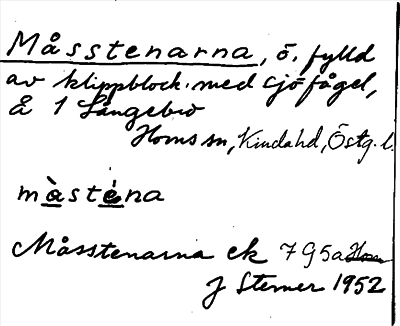 Måsstenarna, ö, fylld
av klippblock med sjöfågel,
å 1 Långebro
Horns sn, Kinda hd, Östg. l.
màsténa
Måsstenarna ek 7 G 5a
J Sterner 1952